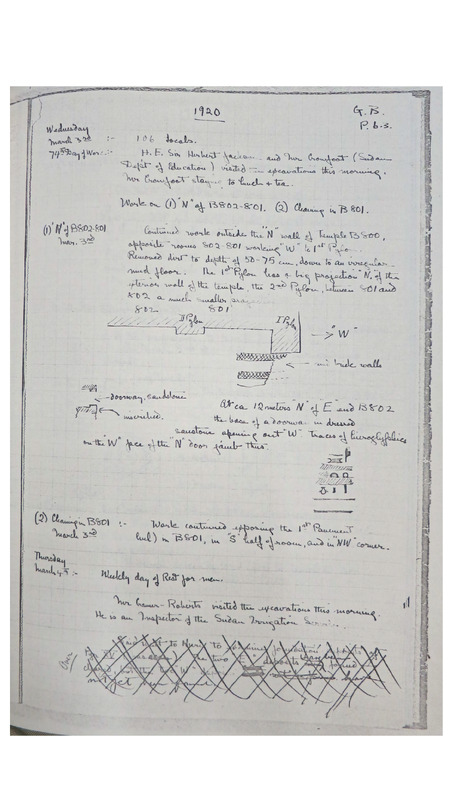 1920
G.B.
P.b.s.
Wednesday
March 3rd :-
74th Day of Work :-
106 locals.
H. E. Sir Herbert Jackson and Mr Crowfoot (Sudan
Dep't of Education) visited excavations this morning.
Mr Crowfoot stayed to lunch & tea.
Work on (1) "N" of B802-801. (2) Clearing in B801.
(1) "N" of B802-801
Mar. 3rd
Continued work outside the "N" wall of Temple B800,
opposite rooms 802-801 working "W" to 1st Pylon.
Removed dirt to depth of 50-75 cm, down to an irregular
mud floor. The 1st Pylon has a big projection N. of the
exterior wall of the temple, the 2nd Pylon, between 801 and
802 a much smaller
802 II Pylon 801 I Pylon
"W"
mud brick walls
doorway, sandstone
inscribed.
At ca 12 meters "N" of "E" end B802
the base of a doorway in dressed
sandstone opening out "W" Traces of hieroglyphics
on the "W" face of the "N" door jamb thus:
(2) Clearing in B801 :-
March 3rd
Work continued exposing the 1st Pavement
in B801, in "S" half of room, and in "NW" corner.
Thursday
March 4th :-
Weekly day of Rest for men.
Mr Roberts visited the excavations this morning.
He is an Inspector of the Sudan Irrigation Service.
Over